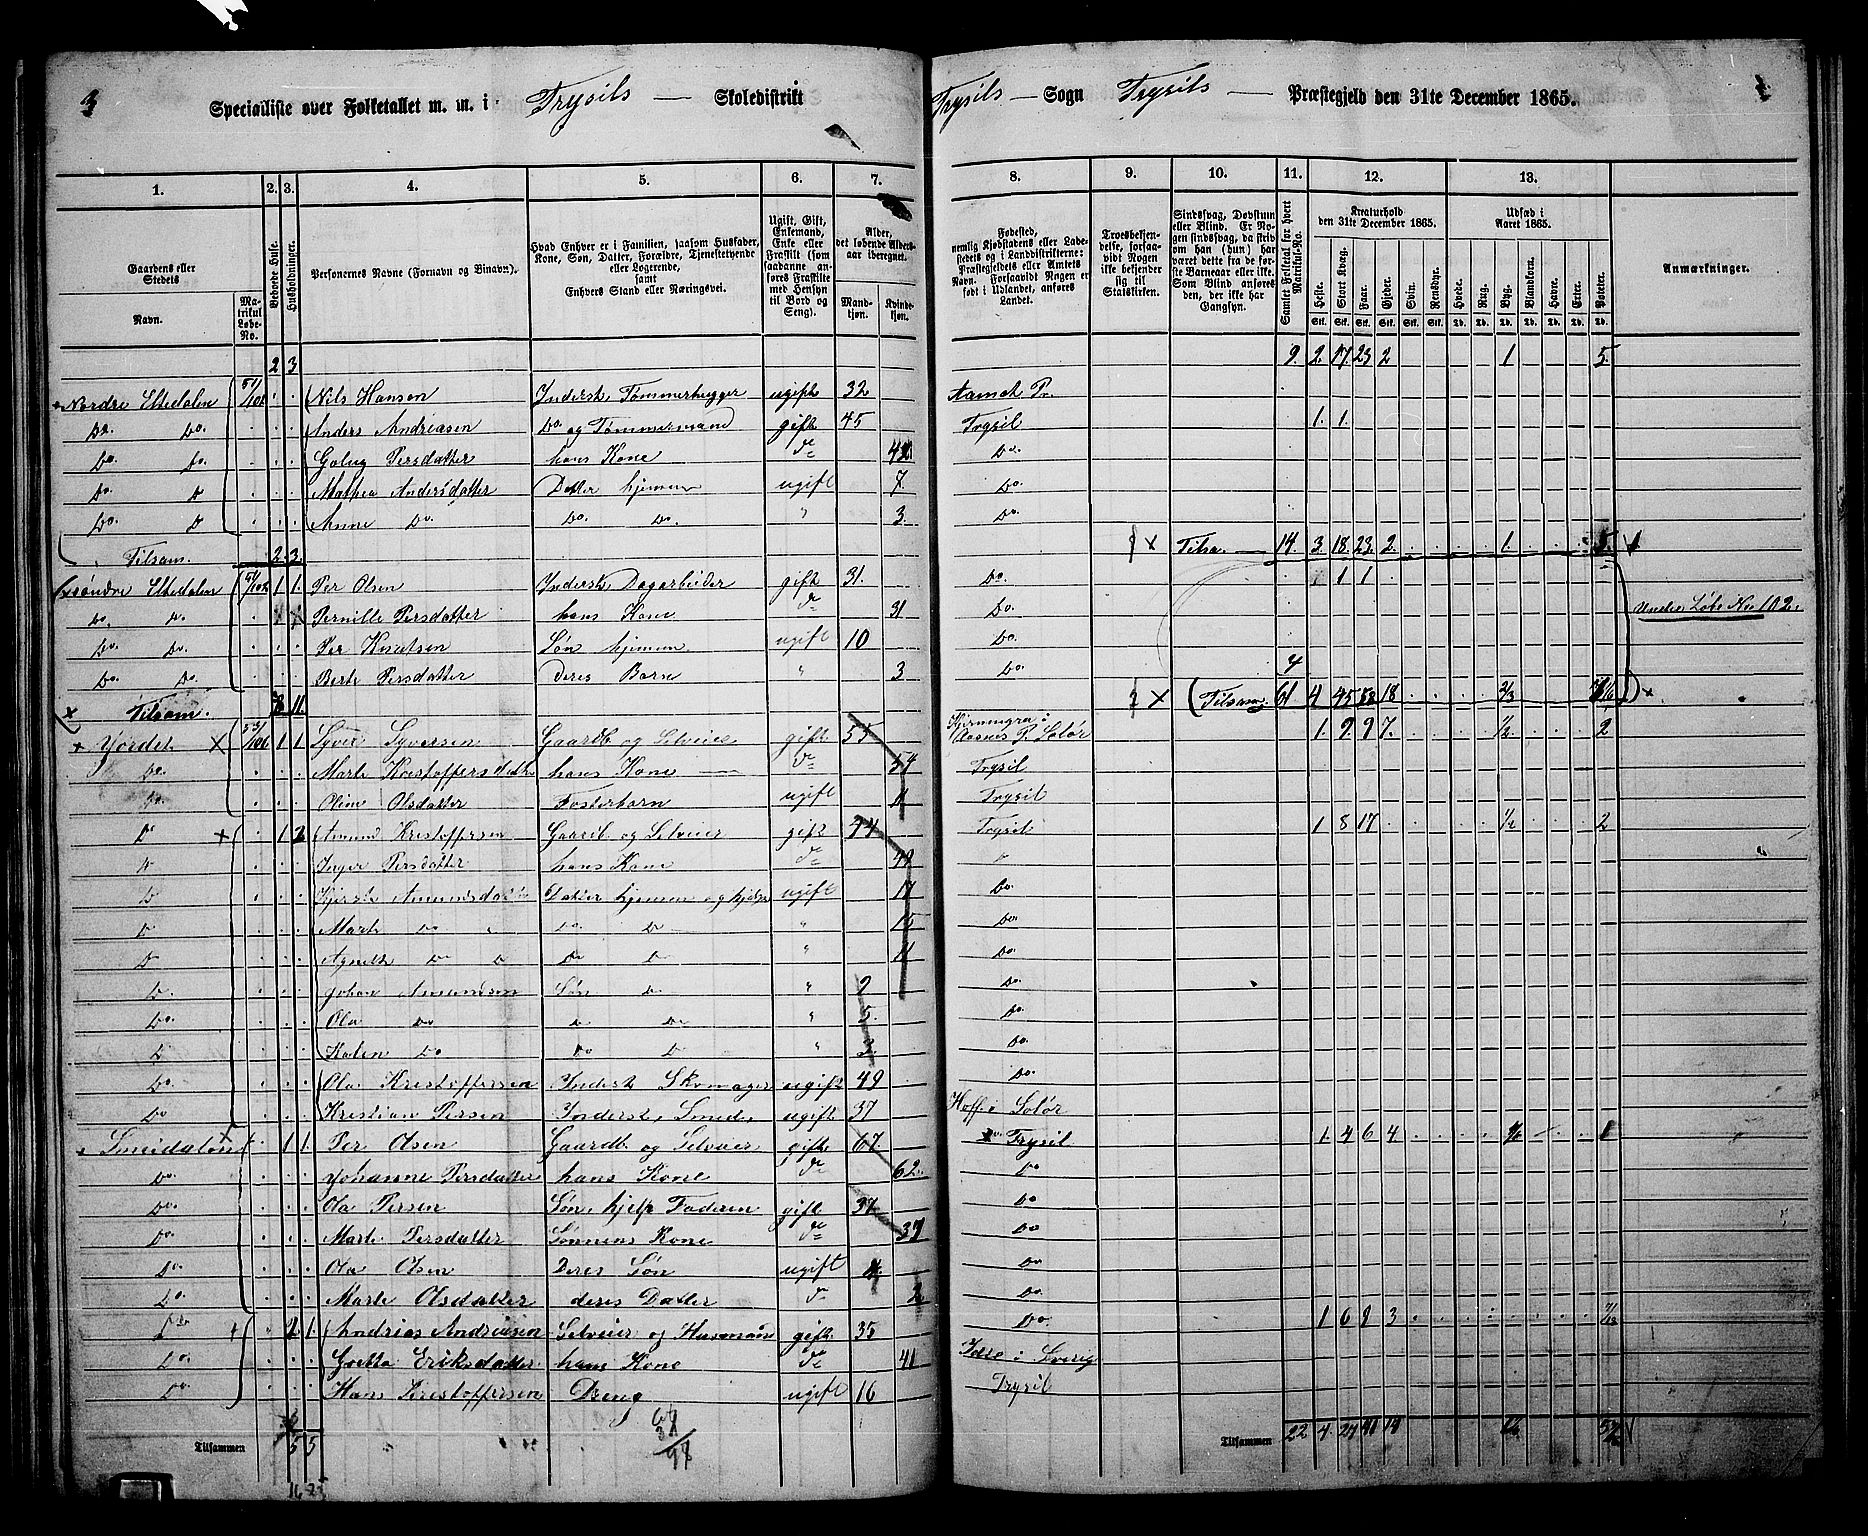 3
Specialliste over Folketallet m. m. i Trysils — Skoledistrikt Trysils — Sogn Trysils — Præstegjeld den 31te December 1865.
1. 2. 3. 4. 5. 6. 7. 8. 9. 10. 11. 12. 13.
Gaardens eller Stedets
Navn.
Matrikul Løbe-No.
Beboede Huse.
Husholdninger.
Personernes Navne (Fornavn og Binavn).
Hvad Enhver er i Familien, saasom Husfader, Kone, Søn, Datter, Forældre, Tjenestetyende eller Logerende, samt Enhvers Stand eller Næringsvei.
Ugift, Gift, Enkemand, Enke eller Fraskilt (som saadanne anføres Fraskilte med Hensyn til Bord og Seng).
Alder, det løbende Alders-aar iberegnet.
Mandkjøn. Kvindekjøn.
Fødested, nemlig Kjøbstadens eller Ladestedets eller i Landdistrikterne: Præstegjeldets eller Amtets Navn. Forsaavidt Nogen er født i Udlandet, anføres Landet.
Troesbekjendelse, forsaavidt Nogen ikke bekjender sig til Statskirken.
Sindssvag, Døvstum eller Blind. Er Nogen sindssvag, da skriv om han (hun) har været dette fra de første Barneaar eller ikke. Som Blind anføres den, der ikke har Gangsyn.
Samlet Folketal for hvert Matrikuls-No.
Kreaturhold den 31te December 1865.
Heste. Stort Kvæg. Faar. Gjeder. Svin. Rensdyr.
Udsæd i Aaret 1865.
Hvede. Rug. Byg. Blandkorn. Havre. Erter. Poteter.
Anmærkninger.
2 3 9. 2. 17. 23 2 1 5.
Nordre Eltedalen Nils Hansen Inderst, Tømmerhugger ugift 32 Aamot Pr.
Do. Do. Anders Andreasen Do og Tømmermand gift 45 Trysil 1. 1.
Do. Do. Persdatter hans Kone Do 42 Do.
Do. Do Mathea Andersdatter Datter hjemme ugift 7 Do.
Do. Do Anne Do. Do. Do. " 3. Do
Tilsam. 2. 3. Tilsa. — 14. 3. 18. 23. 2. 1. 5.
Søndre Eltedalen 1 1. Per Olsen Inderst, Dagarbeider gift 31. Do. 1 1 1
Do. Do. Pernille Persdatter hans Kone Do 31 Do. Under Løbe No 102.
Do. Do. Per Knutsen Søn hjemme ugift 10 Do.
Do. Do. Berte Persdatter deres Barn " 3 Do. 4
Tilsam. 11 Tilsam. 61 4 45 18
Jordet 1 1 Syver Syversen Gaardb. og Selveier gift 55 Solør 1. 9. 9 7. ½ 2
Do. Marte Kristoffersdatter hans Kone — Do 54 Trysil
Do. Oline Olsdatter Fosterbarn ugift 11 Trysil
Do 1 2 Amund Kristoffersen Gaardb. og Selveier gift 44 Trysil 1 8 17 ½ 2
Do Inger Persdatter hans Kone Do
Do Kjersti Amundsdatter Datter hjemme og hjelper ugift 17 Do.
Do Marte Do Do. Do " 15 Do
Do Agnethe Do Do Do Do " 11 Do
Do. Johan Amundsen Søn Do " 9 Do.
Do. Ola Do Do Do " 5. Do.
Do Do Do Do " 3. Do
Do. Ola Kristoffersen Inderst Skomager ugift 49 Do.
Do Kristian Persen Inderst, Smed, ugift 37 Hof i Solør
Smeidalen 1 1. Per Olsen Gaardb. og Selveier gift 67. Trysil 1. 4 6 4 1
Do. Johanne Persdatter hans Kone Do 62. Do
Do. Ola Persen Søn, hjelp Faderen gift 37 Do
Do. Marte Persdatter Sønnens Kone Do 37 Do
Do. Ola Olsen Deres Søn ugift Do
Do. Marte Olsdatter deres Datter Do 2 Do.
Do 1. Andrias Andriasen Selveier og Husmand gift 35 Do. 1 6 9 3
Do. Eriksdatter hans Kone Do 41 Idre i Sverig
Do. Hans Kristoffersen Dreng ugift 16 Trysil
Tilsammen 5 5 Tilsammen 22 4. 27 19
98